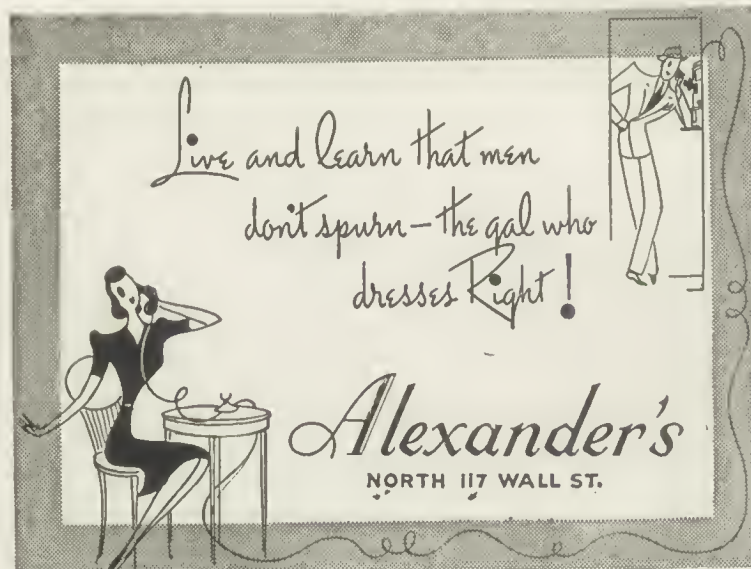 Live and learn that men
don't spurn—the gal who
dresses Right!
Alexander's
NORTH 117 WALL ST.